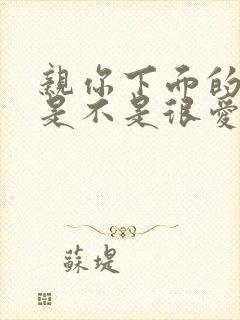 親你下面的
是不是很愛
蘇堤